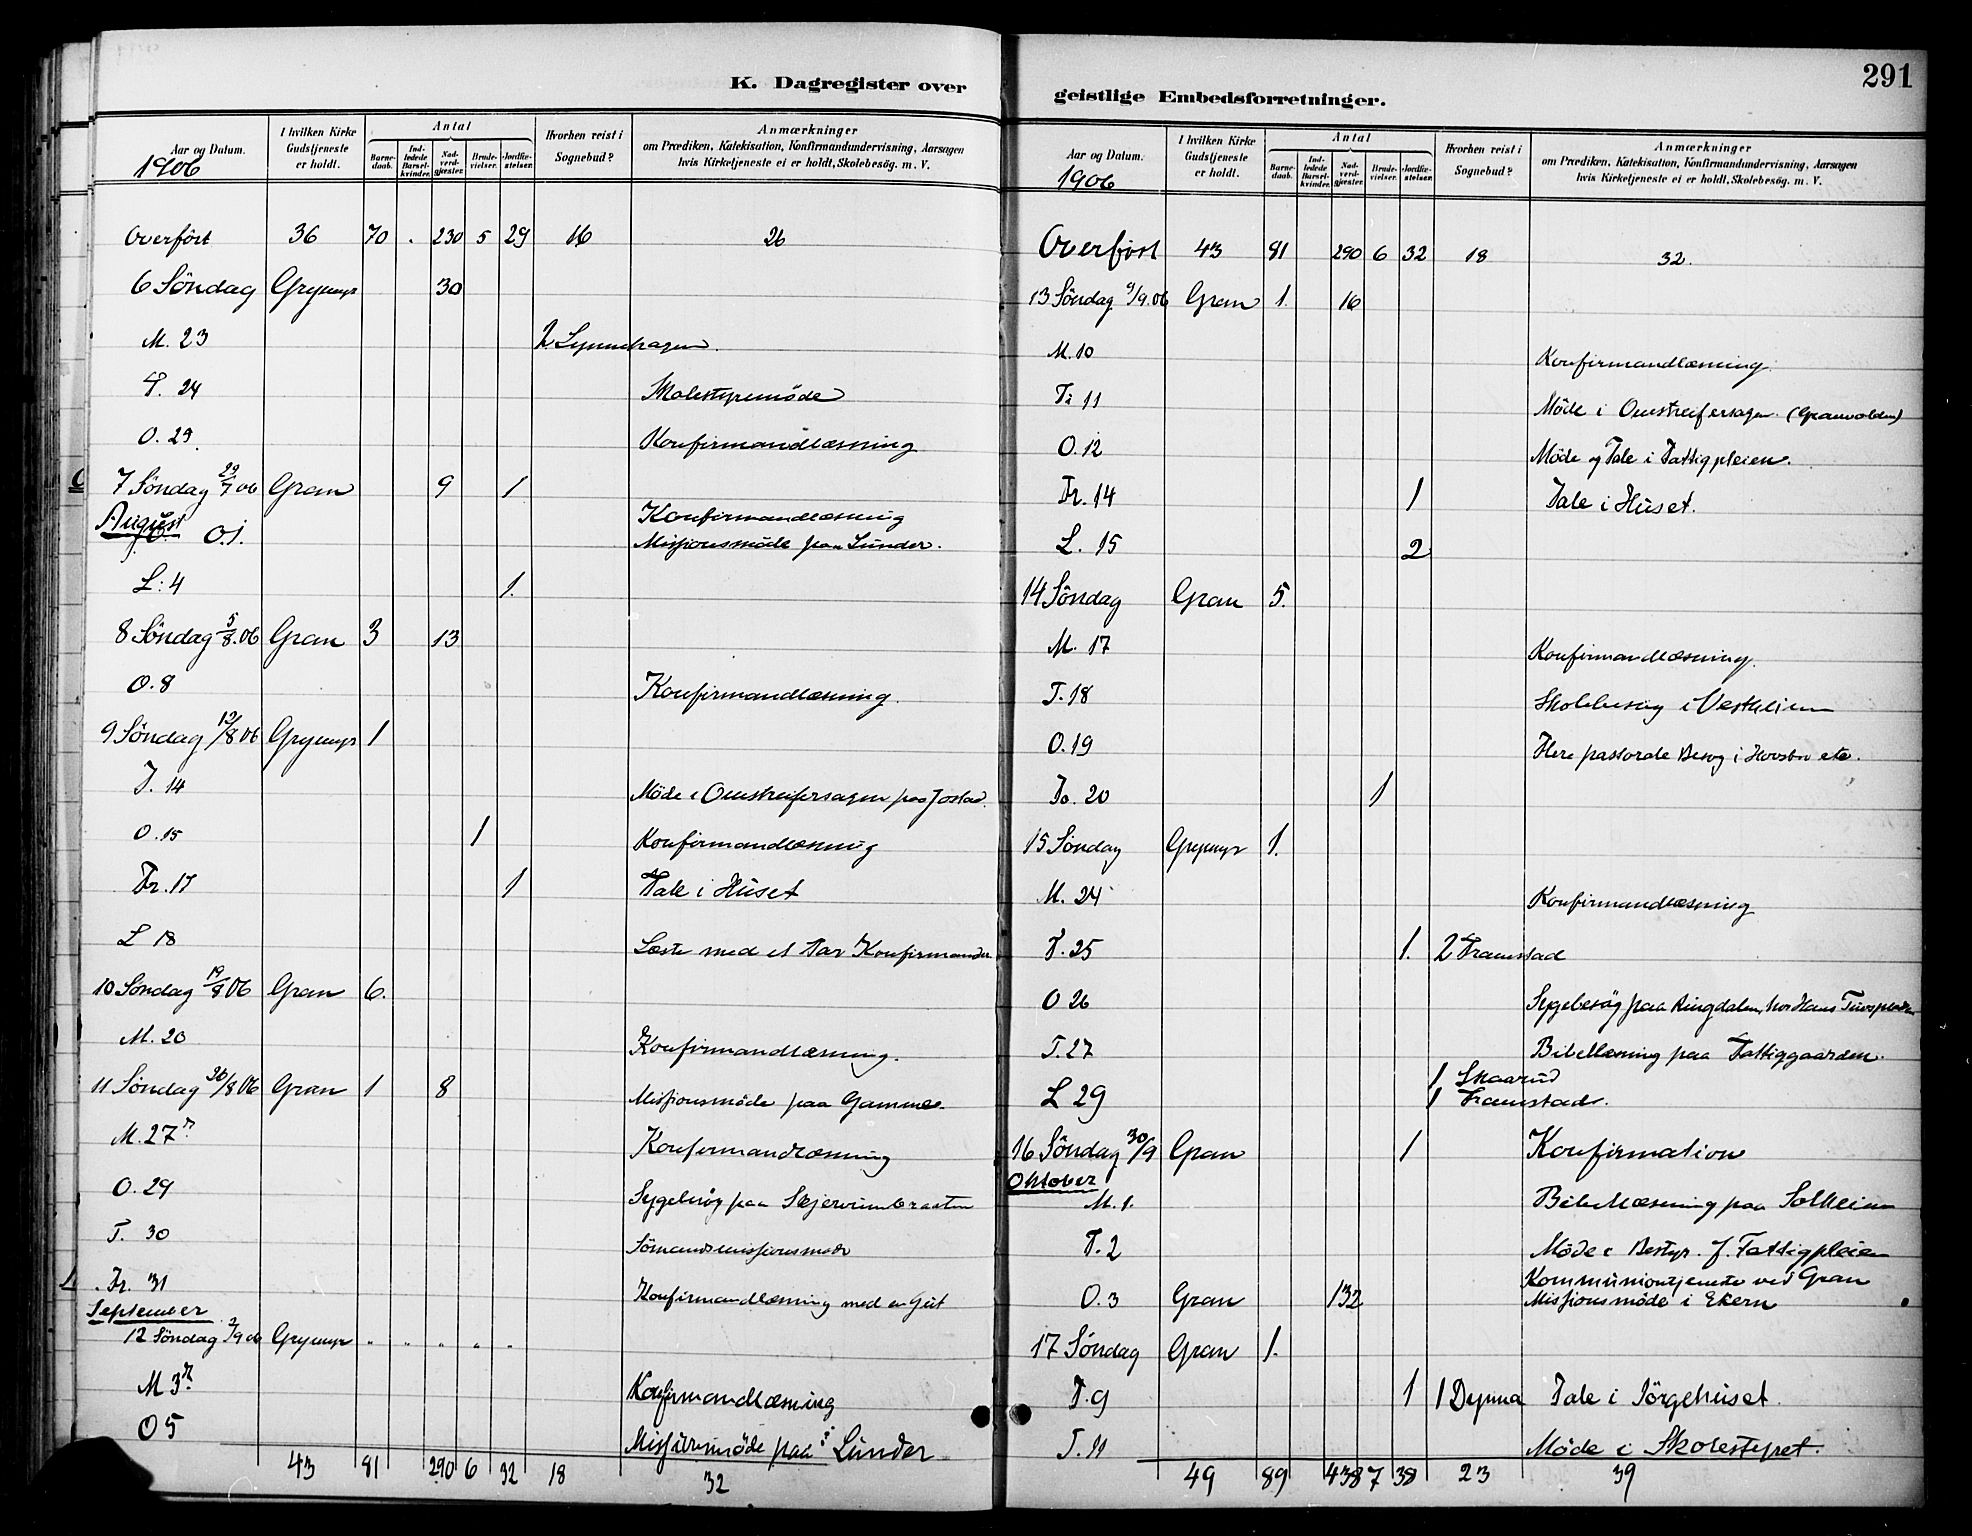 K. Dagregister over
Aar og Datum.
1906
I hvilken Kirke Gudstjeneste er holdt.
Antal
Barne-daab.
Ind-ledede Barsel-kvinder.
Nad-verd-gjæster.
Brude-vielser.
Jordfæ-stelser.
Hvorhen reist i Sognebud?
Anmærkninger
om Prædiken, Katekisation, Konfirmandundervisning, Aarsagen
hvis Kirketjeneste ei er holdt, Skolebesøg. m. V.
Overført 36 70 . 230 5 29 16 26
6 Søndag Grymyr 30
M. 23 2 Lynnehagen
T. 24 Skolestyremøde
O. 25. Konfirmandlæsning
7 Søndag 29/7 06 Gran 9 1
August O. 1. Konfirmandlæsning
Missionsmøde paa Lunder.
L. 4 1.
8 Søndag 5/8.06 Gran 3 13
O. 8 Konfirmandlæsning.
9 Søndag 12/8 06 Grymyr 1
T. 14 Møde i Omstreifersagen paa Jostad.
O. 15 1 Konfirmandlæsning
Fr. 17 1 Tale i Huset
L 18 Læste med et Par Konfirmander
10 Søndag 19/8 06 Gran 6.
M. 20 Konfirmandlæsning.
11 Søndag 26/8 06 Gran 1 8 Missionsmøde paa Gamme.
M. 27 Konfirmandlæsning
O. 29 Sygebesøg paa Skjervumbraaten
T. 30 Sømandsmissionsmøde
Fr. 31 Konfirmandlæsning med en Gut
September
12 Søndag 2/9 06 Grymyr " " " " "
M 3 Konfirmandlæsning
O 5 Missionsmøde paa Lunder
43 81 290 6 32 18 32
geistlige Embedsforretninger.
291
Aar og Datum.
1906
I hvilken Kirke Gudstjeneste er holdt.
Antal
Barne-daab.
Ind-ledede Barsel-kvinder.
Nad-verd-gjæster.
Brude-vielser.
Jordfæ-stelser.
Hvorhen reist i Sognebud?
Anmærkninger
om Prædiken, Katekisation, Konfirmandundervisning, Aarsagen
hvis Kirketjeneste ei er holdt, Skolebesøg. m. V.
Overført 43 81 290 6 32 18 32.
13 Søndag 9/9.06 Gran 1. 16
M. 10 Konfirmandlæsning.
Ti 11 Møde i Omstreifersagen. (Granvolden)
O. 12 Møde og Tale i Fattigpleien.
Fr. 14 1 Tale i Huset.
L. 15 2
14 Søndag Gran 5.
M. 17 Konfirmandlæsning.
T. 18 Skolebesøg i Vestheim
O. 19 Flere pastorale Besøg i Hovsbro etc.
To. 20 1
15 Søndag Grymyr 1.
M. 24 Konfirmandlæsning
T. 25 1. 2 Framstad
O 26 Sygebesøg paa Ringdalen, hos Hans
T. 27 Bibellæsning paa Fattiggaarden.
L 29 1 Skaarud
1 Framstad.
16 Søndag 30/9 Gran 1 Konfirmation
Oktober
M. 1. Bibellæsning paa Solheim
T. 2 Møde i Bestyr. f. Fattigpleien
Kommuniontjeneste ved Gran
O. 3 Gran 132 Missionsmøde i Ekern
17 Søndag Gran 1.
T. 9 1 1 Dynna Tale i Sørgehuset.
T. 11 Møde i Skolestyret.
49 89 438 7 38 23 39